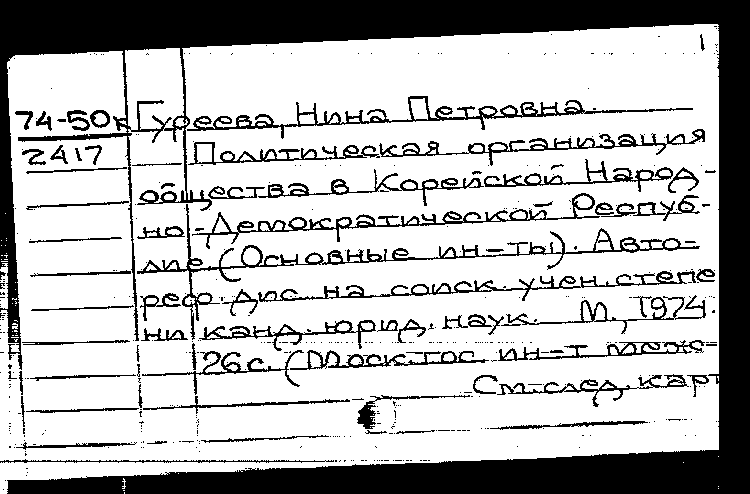 1
74-50к Гуреева, Нина Петровна.
2417 Политическая организация
общества в Корейской Народ-
но-Демократической Респуб-
лике. (Основные ин-ты). Авто-
реф. дис. на соиск. учен. степе
ни канд. юрид. наук. М., 1974.
26 с. (Моск. гос. ин-т меж-
См. след. карт